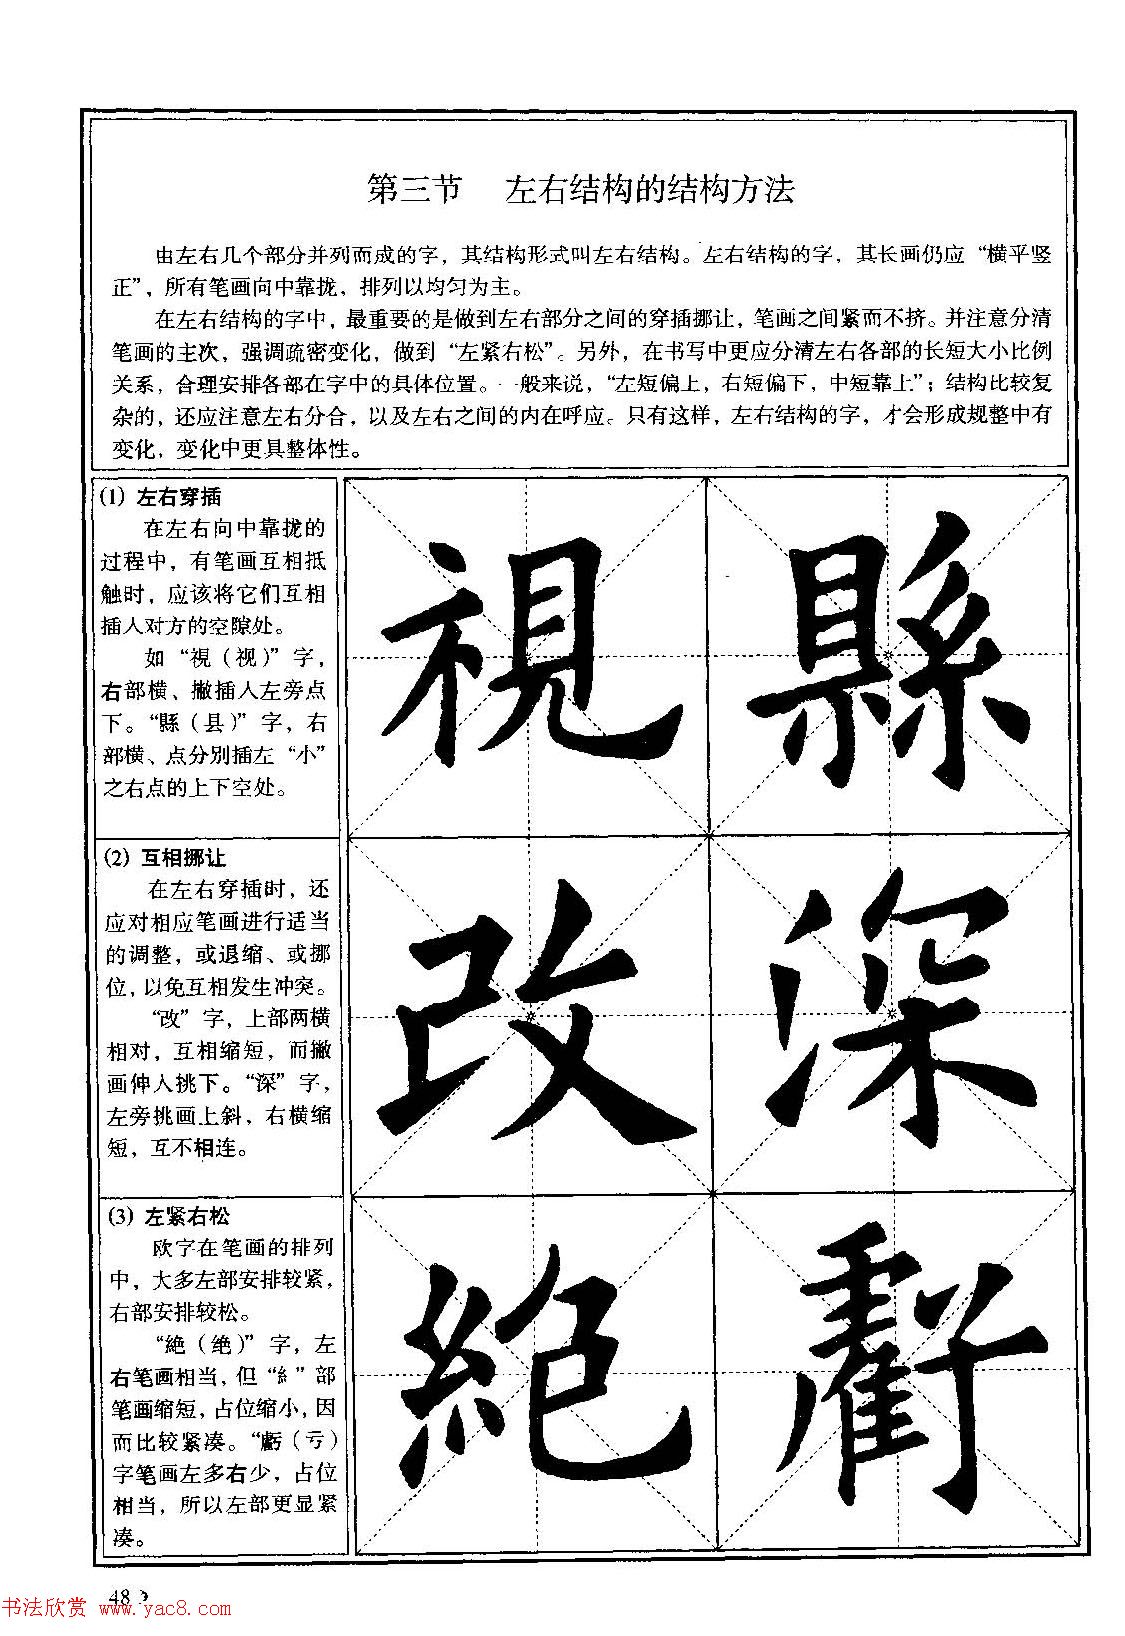 第三节　左右结构的结构方法
由左右几个部分并列而成的字，其结构形式叫左右结构。左右结构的字，其长画仍应“横平竖
正”，所有笔画向中靠拢，排列以均匀为主。
在左右结构的字中，最重要的是做到左右部分之间的穿插挪让，笔画之间紧而不挤。并注意分清
笔画的主次，强调疏密变化，做到“左紧右松”。另外，在书写中更应分清左右各部的长短大小比例
关系，合理安排各部在字中的具体位置。一般来说，“左短偏上，右短偏下，中短靠上”；结构比较复
杂的，还应注意左右分合，以及左右之间的内在呼应。只有这样，左右结构的字，才会形成规整中有
变化，变化中更具整体性。
(1) 左右穿插
在左右向中靠拢的
过程中，有笔画互相抵
触时，应该将它们互相
插人对方的空隙处。
如“視（视）”字，
右部横、撇插人左旁点
下。“縣（县）”字，右
部横、点分别插左“小”
之右点的上下空处。
視縣
(2) 互相挪让
在左右穿插时，还
应对相应笔画进行适当
的调整，或退缩、或挪
位，以免互相发生冲突。
“改”字，上部两横
相对，互相缩短，而撇
画伸人挑下。“深”字，
左旁挑画上斜，右横缩
短，互不相连。
改深
(3) 左紧右松
欧字在笔画的排列
中，大多左部安排较紧，
右部安排较松。
“絶（绝）”字，左
右笔画相当，但“糹”部
笔画缩短，占位缩小，因
而比较紧凑。“虧（亏）
字笔画左多右少，占位
相当，所以左部更显紧
凑。
絶虧
48
书法欣赏 www.yac8.com